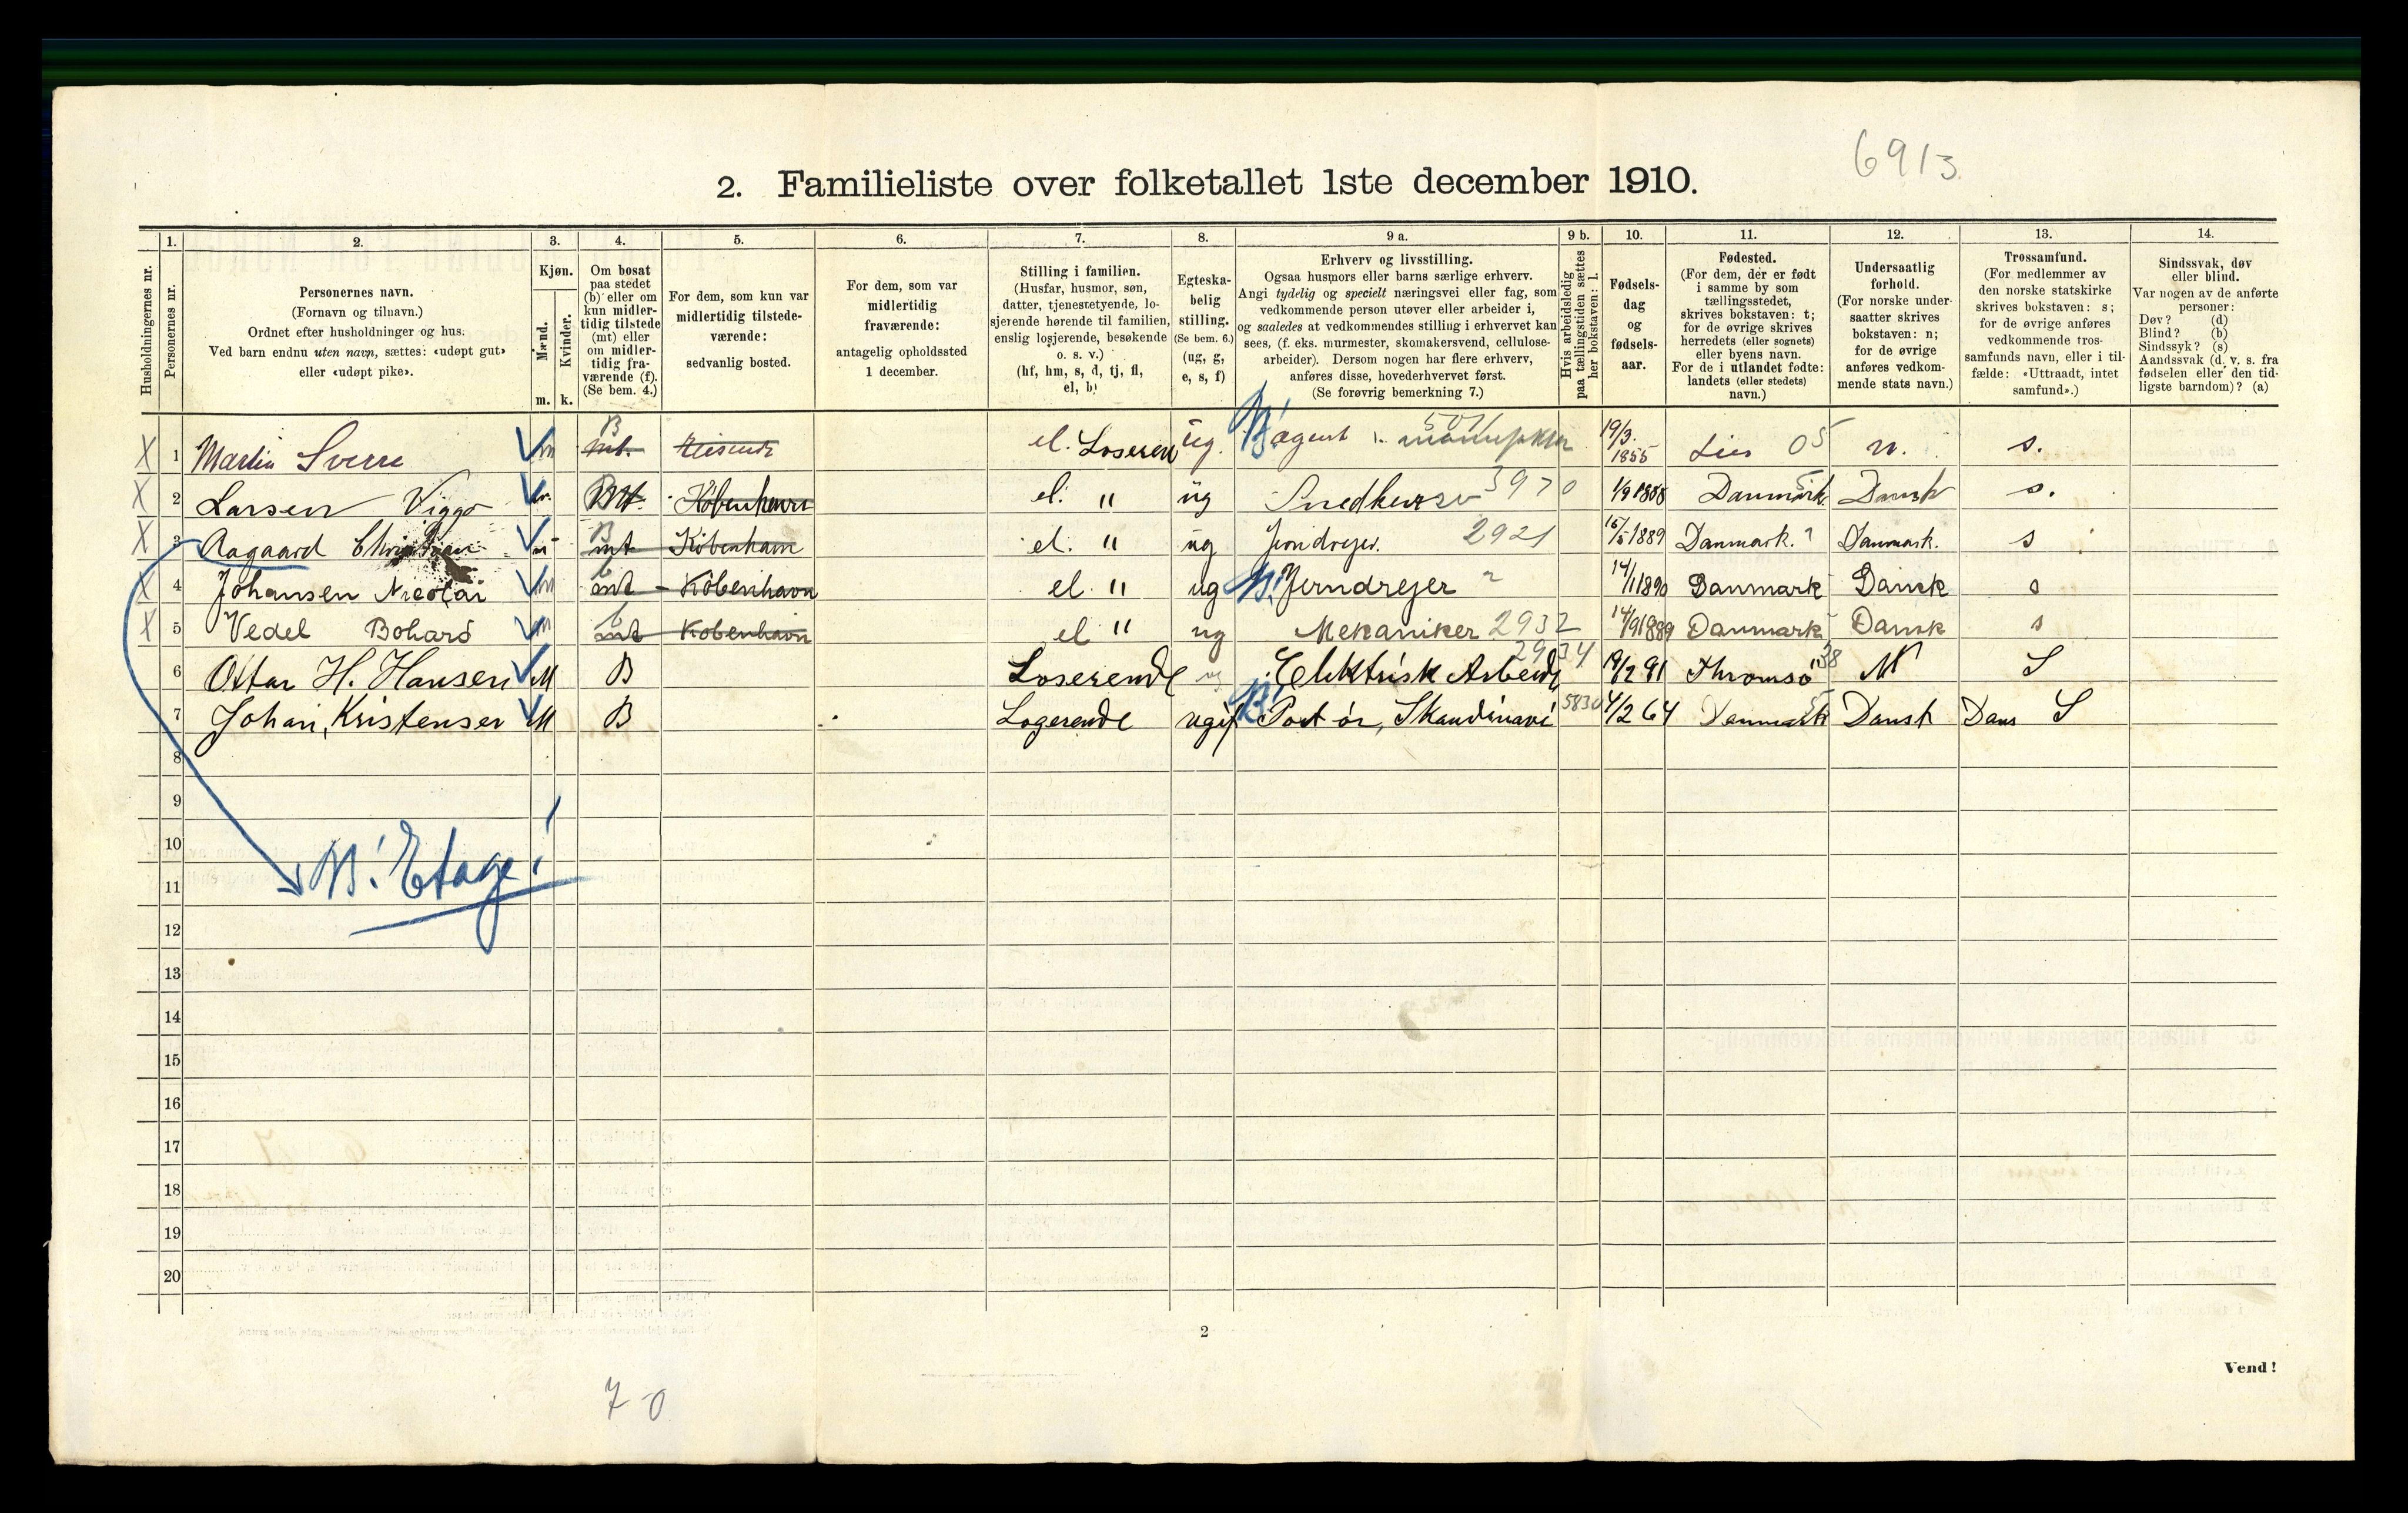 6913
2. Familieliste over folketallet 1ste december 1910.
Husholdningernes nr.
1. Personernes nr.
2. Personernes navn.
(Fornavn og tilnavn.)
Ordnet efter husholdninger og hus.
Ved barn endnu uten navn, sættes: «udøpt gut»
eller «udøpt pike».
3. Kjøn.
Mænd. Kvinder.
m. k.
4. Om bosat
paa stedet
(b) eller om
kun midler-
tidig tilstede
(mt) eller
om midler-
tidig fra-
værende (f).
(Se bem. 4.)
5. For dem, som kun var
midlertidig tilstede-
værende:
sedvanlig bosted.
6. For dem, som var
midlertidig
fraværende:
antagelig opholdssted
1 december.
7. Stilling i familien.
(Husfar, husmor, søn,
datter, tjenestetyende, lo-
sjerende hørende til familien,
enslig losjerende, besøkende
o. s. v.)
(hf, hm, s, d, tj, fl,
el, b)
8. Egteska-
belig
stilling.
(Se bem. 6.)
(ug, g,
e, s, f)
9 a. Erhverv og livsstilling.
Ogsaa husmors eller barns særlige erhverv.
Angi tydelig og specielt næringsvei eller fag, som
vedkommende person utøver eller arbeider i,
og saaledes at vedkommendes stilling i erhvervet kan
sees, (f. eks. murmester, skomakersvend, cellulose-
arbeider). Dersom nogen har flere erhverv,
anføres disse, hovederhvervet først.
(Se forøvrig bemerkning 7.)
9 b. Hvis arbeidsledig
paa tællingstiden sættes
her bokstaven: l.
10. Fødsels-
dag
og
fødsels-
aar.
11. Fødested.
(For dem, der er født
i samme by som
tællingsstedet,
skrives bokstaven: t;
for de øvrige skrives
herredets (eller sognets)
eller byens navn.
For de i utlandet fødte:
landets (eller stedets)
navn.)
12. Undersaatlig
forhold.
(For norske under-
saatter skrives
bokstaven: n;
for de øvrige
anføres vedkom-
mende stats navn.)
13. Trossamfund.
(For medlemmer av
den norske statskirke
skrives bokstaven: s;
for de øvrige anføres
vedkommende tros-
samfunds navn, eller i til-
fælde: «Uttraadt, intet
samfund».)
14. Sindssvak, døv
eller blind.
Var nogen av de anførte
personer:
Døv? (d)
Blind? (b)
Sindssyk? (s)
Aandssvak (d. v. s. fra
fødselen eller den tid-
ligste barndom)? (a)
X 1 Martin Sverre m B mt. Reisende el. Loseren ug. agent 501 19/3. 1855 Lier 05 n. s.
X 2 Larsen Viggo m. B mt. København el. " ug Snedkersv 3970 1/9 1888 Danmark Dansk s.
X 3 Aagaard Christian m B mt København el. " ug Jerndrejer. 2921 15/5 1889 Danmark. Danmark. s
X 4 Johansen Nicolai m b mt København el " ug Jerndrejer " 14/1 1890 Danmark Dansk s
X 5 Vedel Bohard m b mt København el " ug Mekaniker 2932 14/9 1889 Danmark Dansk s
6 Ottar H. Hansen M B Loserende ug Elektrisk Arbeid 2934 19/2 91 Thromsö 38 N S
7 Johan, Kristensen M B Logerende ugif Portör, Skandinavi 5830 4/2 64 Danmark Dansk Dans S
8
9
10
11 N! Etage!
12
13
14
15
16
17
18
19
20
2
Vend!
7 0